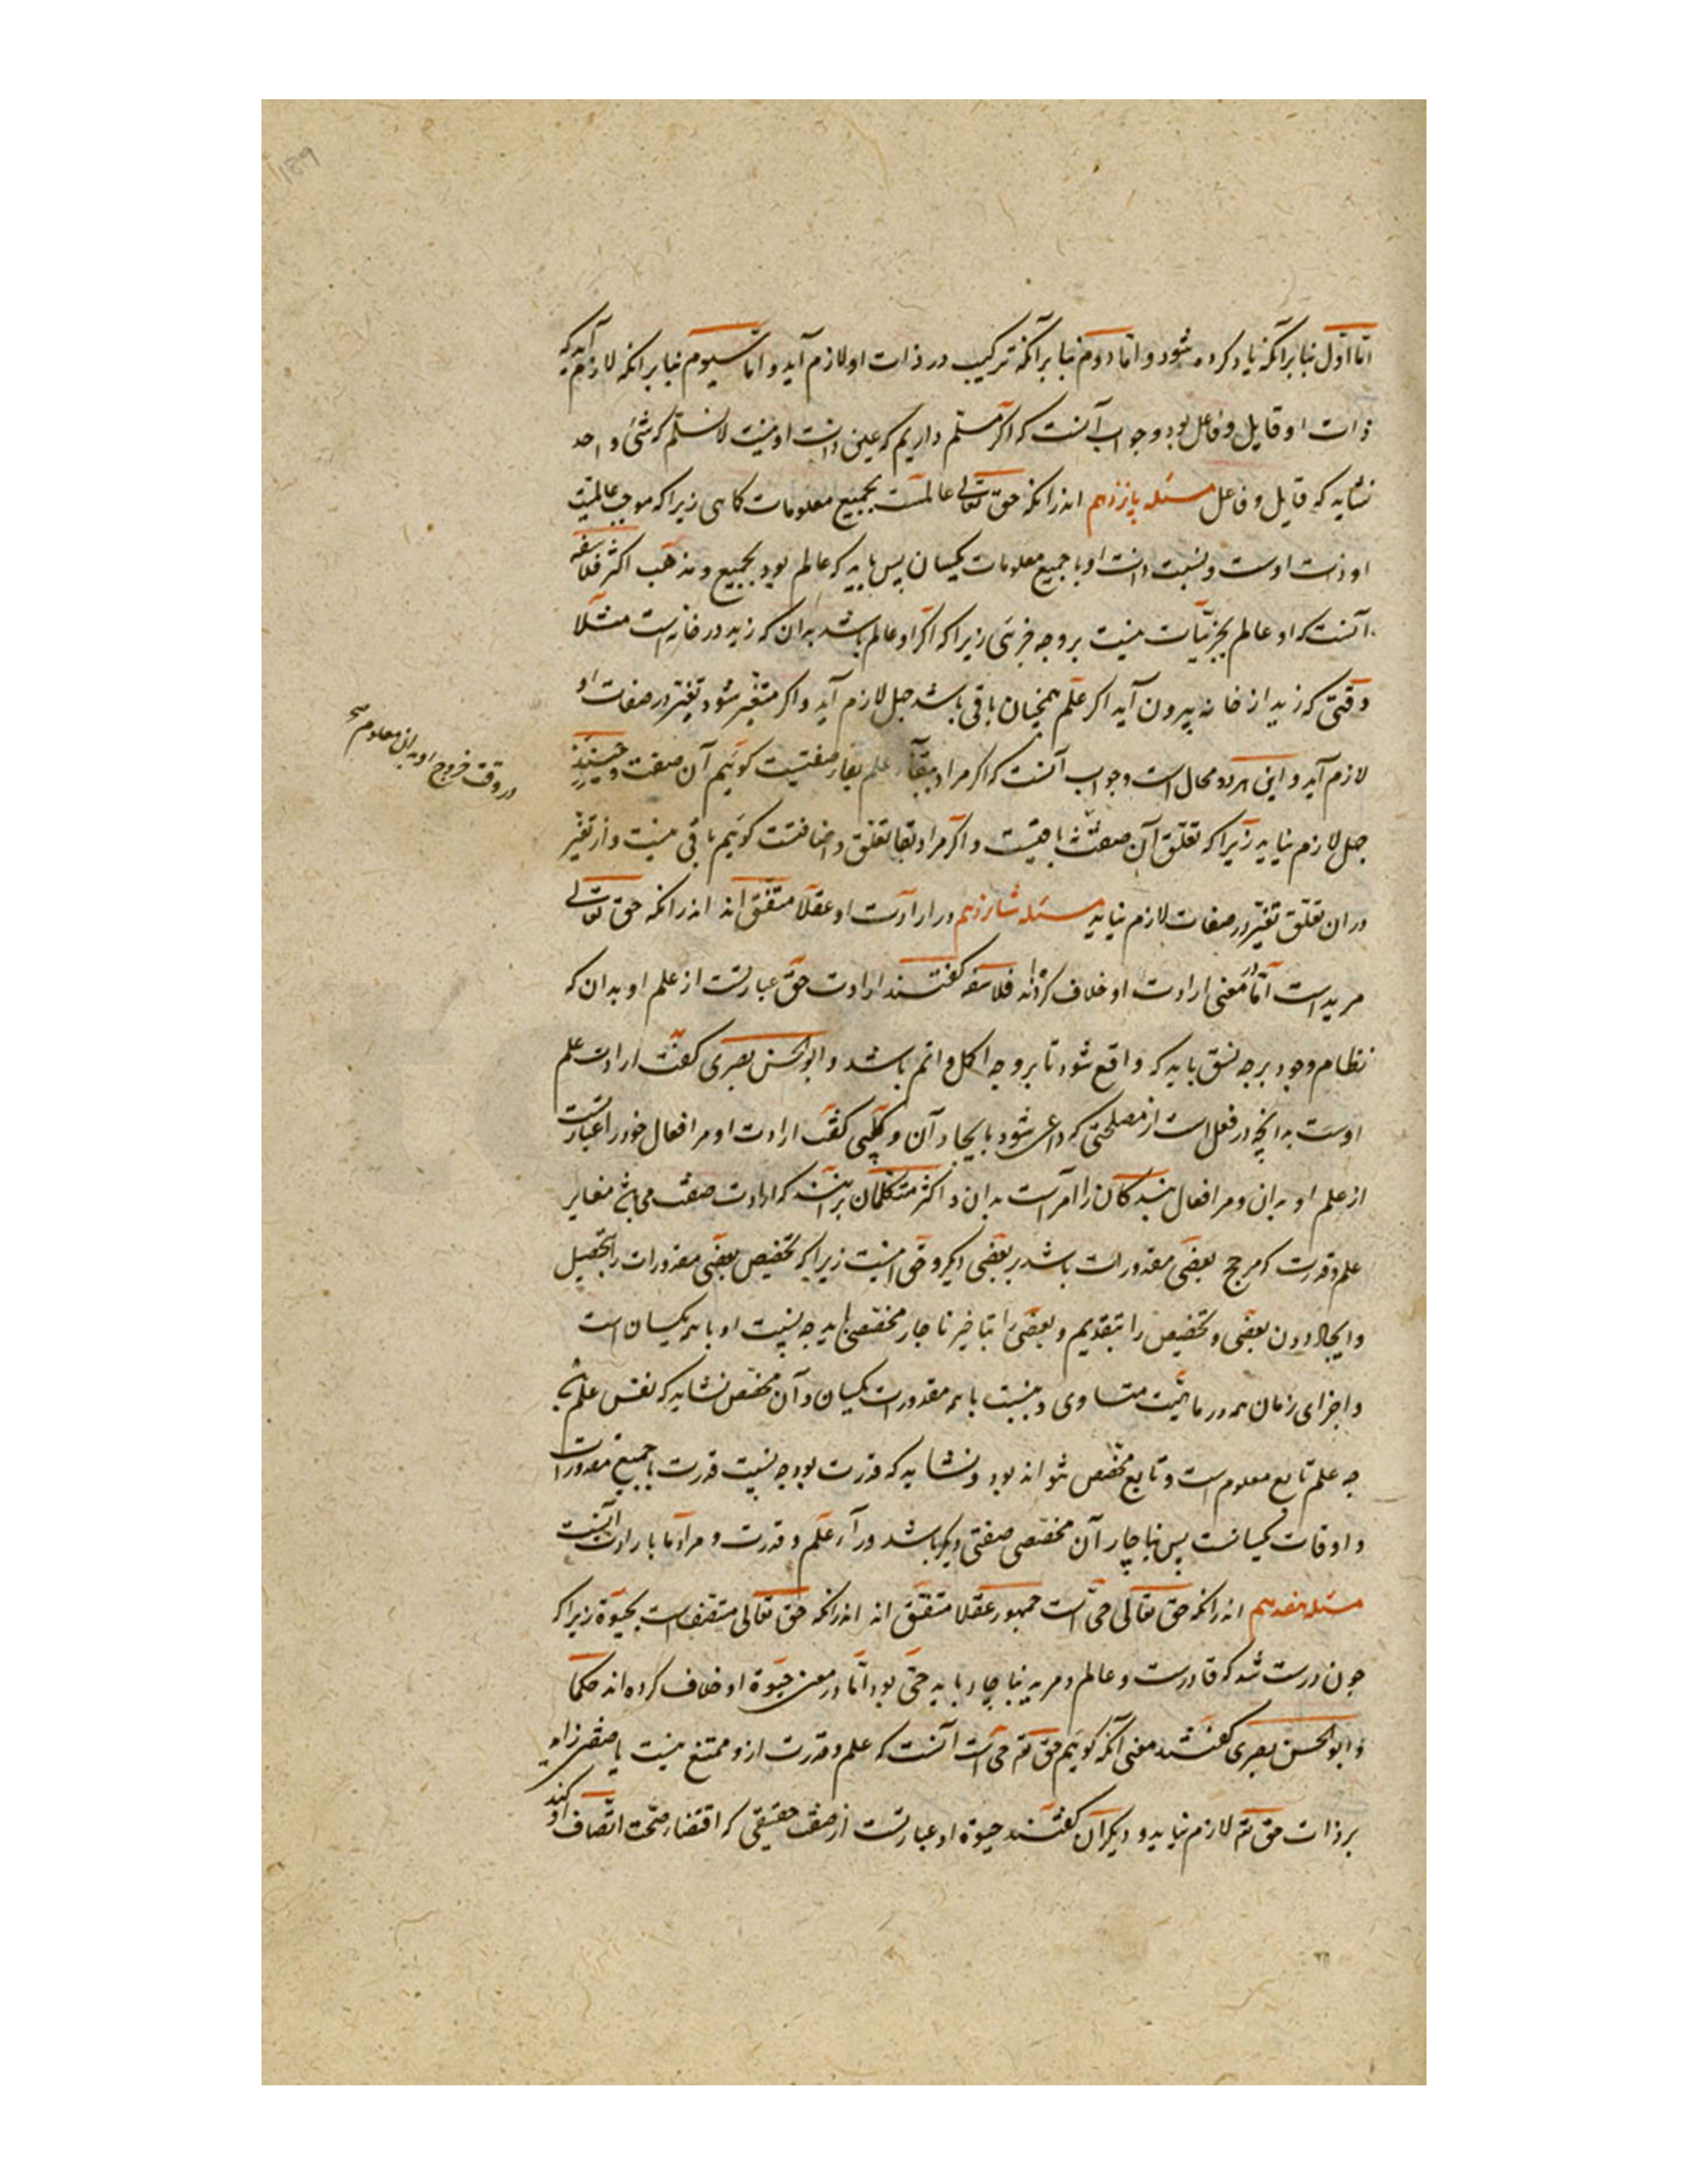 اما اول بنابر آنکه یاد کرده شود و اما دوم بنابر آنکه ترکیب در ذات او لازم آید و اما سیوم بنابر انکه لازم آید که
ذات او قابل و فاعل بود و جواب آنست که اکر مسلم داریم که عین ذات او نیست لا نسلم که شئ واحد
نشاید که قابل و فاعل مسئله پانزدهم اندرانکه حق تعالی عالمست بجمیع معلومات کاهی زیرا که موجب عالمیت
او ذات اوست و نسبت ذات او با جمیع معلومات یکسان پس باید که عالم بود بجمیع و مذهب اکثر فلاسفه
آنست که او عالم بجزئیات نیست بر وجه جزئی زیرا که اکر او عالم باشد بدان که زید در خانه است مثلا
وقتی که زید از خانه بیرون آید اکر علم همچنان باقی باشد جهل لازم آید و اکر متغیر شود تغیر در صفات او
لازم آید و این هر دو محال است و جواب آنست که اکر مراد ببقاء علم بقاء صفتیست کوئیم آن صفت و حینئذ
جهل لازم نیاید زیرا که تعلق آن صفت باقیست و اکر مراد بقا تعلق و اضافتست کوئیم باقی نیست و از تغیر
در ان تعلق تغیر در صفات لازم نیاید مسئله شانزدهم در ارادت او عقلا متفق اند اندرانکه حق تعالی
مرید است اما در معنی ارادت او خلاف کرده اند فلاسفه کفتند ارادت حق عبارتست از علم او بدان که
نظام وجود بر چه نسق باید که واقع شود تا بر وجه اکمل و اتم باشد و ابو الحسن بصری کفت ارادت علم
اوست بدانچه در فعل است از مصلحتی که داعی شود بایجاد آن و کعبی کفت ارادت او مر افعال خود را عبارتست
از علم او بدان و مر افعال بندکان را امر است بدان و اکثر متکلمان برانند که ارادت صفت می باشد مغایر
علم و قدرت که مرجح بعضی مقدورات باشد بر بعضی دیکر و حق اینست زیرا که تخصیص بعضی مقدورات را بتحصیل
و ایجاد دون بعضی و تخصیص را بتقدیم و بعضی را بتاخیر ناچار مخصصی باید چه نسبت او با همه یکسان است
و اجزای زمان همه در ماهیت متساوی و نسبت با همه مقدورات یکسان و آن مخصص نشاید که نفس علم باشد
چه علم تابع معلوم است و تابع مخصص نتواند بود و نشاید که قدرت بود چه نسبت قدرت با جمیع مقدورات
و اوقات یکسانست پس ناچار آن مخصص صفتی دیکر باشد وراء علم و قدرت و مراد ما بارادت اینست
مسئله هفدهم اندرانکه حق تعالی حی است جمهور عقلا متفق اند اندرانکه حق تعالی متصف است بحیوة زیرا که
چون درست شد که قادرست و عالم و مرید ناچار باید حی بود اما در معنی حیوة او خلاف کرده اند حکما
و ابو الحسن بصری کفتند معنی آنکه کوئیم حق تع حی است آنست که علم و قدرت ازو ممتنع نیست پا صفتی زاید
بر ذات حق تع لازم نیاید و دیکران کفتند حیوة او عبارتست از صفت حقیقی که اقتضاء صحت اتصاف او کند
در وقت خروج او بدان معلوم صح